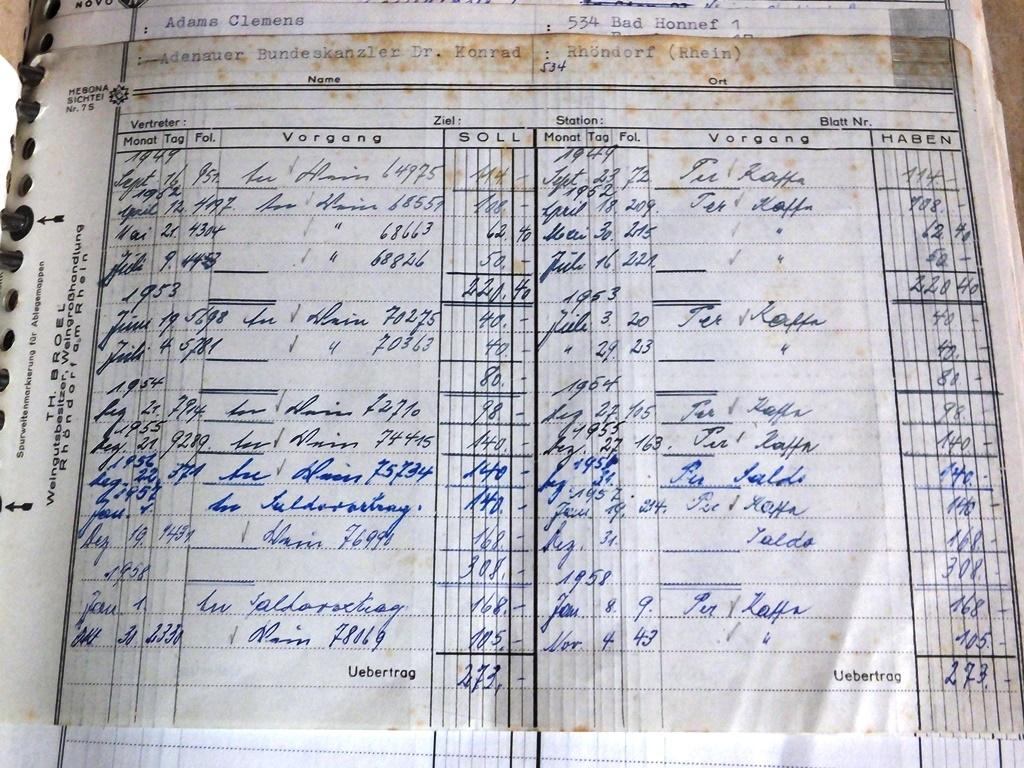 NOVO
: Adams Clemens : 534 Bad Honnef 1
: Adenauer Bundeskanzler Dr. Konrad : Rhöndorf (Rhein)
534
Name Ort
HEBONA
SICHTEI
Nr. 75
Vertreter: Ziel: Station: Blatt Nr.
Monat Tag Fol. Vorgang SOLL Monat Tag Fol. Vorgang HABEN
1949 1949
Sept. 16 951 An Wein 64975 114.- Sept. 23 72 Per Kassa 114.-
1952 1952
April 12. 4197 An Wein 68551 108.- April 18. 209. Per Kassa 108.-
Mai 21. 4304 " 68663 62.40 Mai 30. 215 " 62.40
Juli 9. " 68826 50.- Juli 16. 221. " 50.-
220.40 220.40
1953 1953
Juni 19. 5698 An Wein 70275 40.- Juli 3. 20 Per Kassa 40.-
Juli 4. 5781 " 70363 40.- " 29. 23 " 40.-
80.- 80.-
1954 1954
Dez. 21. 7914. An Wein 72710 98.- Dez. 27. 105 Per Kassa 98.-
1955 1955
Dez. 21 9289 An Wein 74415 140.- Dez. 27. 163. Per Kassa 140.-
1956 1956
Dez. 22. 371 An Wein 75734 140.- Dez. 31. Per Saldo 140.-
1957 1957.
Jan. 1. An Saldovortrag. 140.- Jan. 19. 234. Per Kassa 140.-
Dez. 19. 1431 Wein 76990 168.- Dez. 31. Saldo 168.-
308.- 308.-
1958 1958
Jan. 1. An Saldovortrag 168.- Jan. 8. 9. Per Kassa 168.-
Okt. 30. 2330 Wein 78069 105.- Nov. 4 43 " 105.-
Uebertrag 273.- Uebertrag 273.-
Spurweitenmarkierung für Ablegemappen
TH. BROEL
Weingutsbesitzer, Weingroßhandlung
Rhöndorf am Rhein